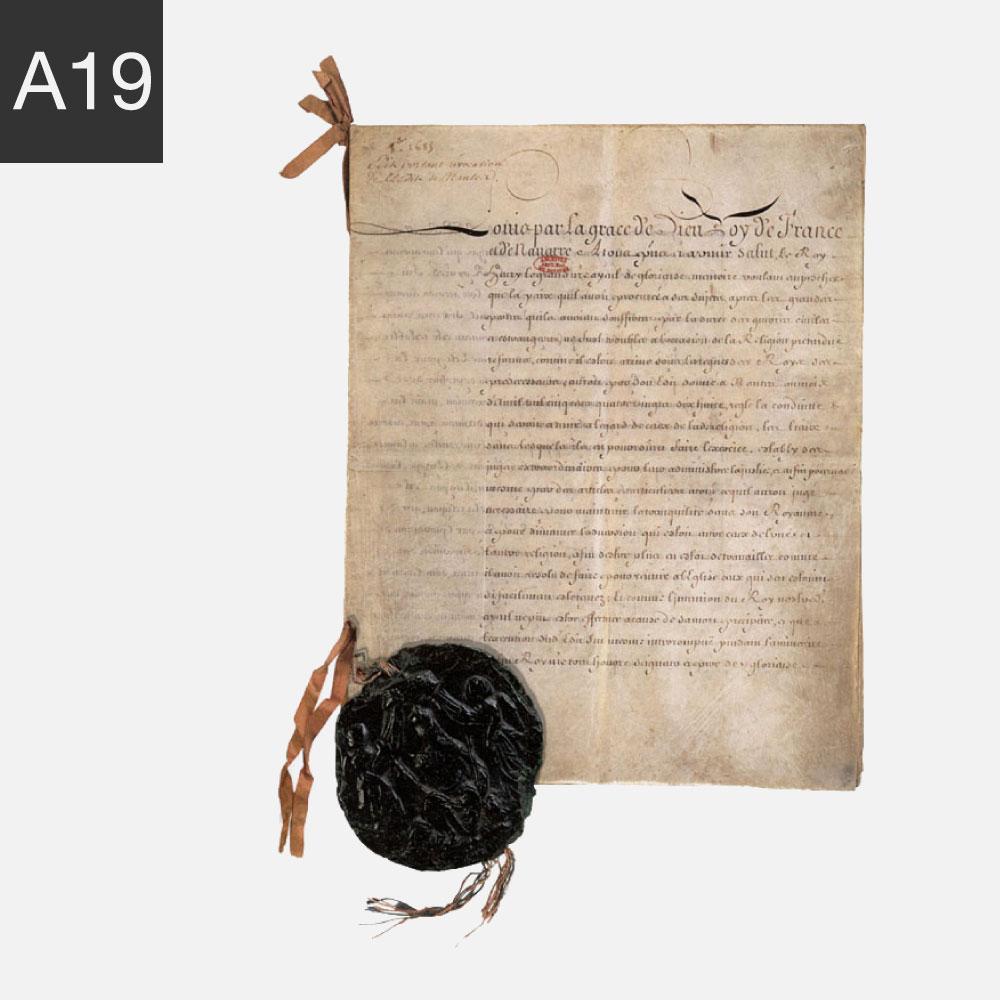 A19
1685
Edit portant revocation
de l'Edit de Nantes.
Louis par la grace de Dieu Roy de France
et de Navarre A tous p̃ns et a venir Salut, le Roy
Henry le grand nr̃e ayeul de glorieuse memoire voulant empescher
que la paix quil avoit procurée a ses sujets, apres les grandes
pertes quils avoient souffertes par la duree des guerres civiles
et estrangeres, ne fust troublée a l'occasion de la Religion pretendue
reformée, comme il estoit arrivé sous les regnes des Roys ses
predecesseurs, auroit par son Edit donné a Nantes au mois
d'avril mil cinq cens quatre vingts dix huit, reglé la conduitte
qui seroit a tenir a l'egard de ceux de lad. religion, les lieux
dans lesquels ils en pouroient faire l'exercice, estably des
juges extraordinaires pour leur administrer la justice, et enfin pourveu
mesme par des articles particuliers a tout ce quil auroit jugé
necessaire pour maintenir la tranquilité dans son Royaume
et pour diminuer l'aversion qui estoit entre ceux de l'une et
l'autre religion, afin d'estre plus en estat de travailler comme
il avoit resolu de faire pour reunir a l'Eglise ceux qui s'en estoient
si facilement esloignez; Et comme l'intention du Roy nostred.
ayeul ne put estre effectuée a cause de sa mort precipitée, et que
l'execution dud. Edit fut mesme interrompue pendant la minorité
Roy nr̃e tres honoré seigneur et pere de glorieuse